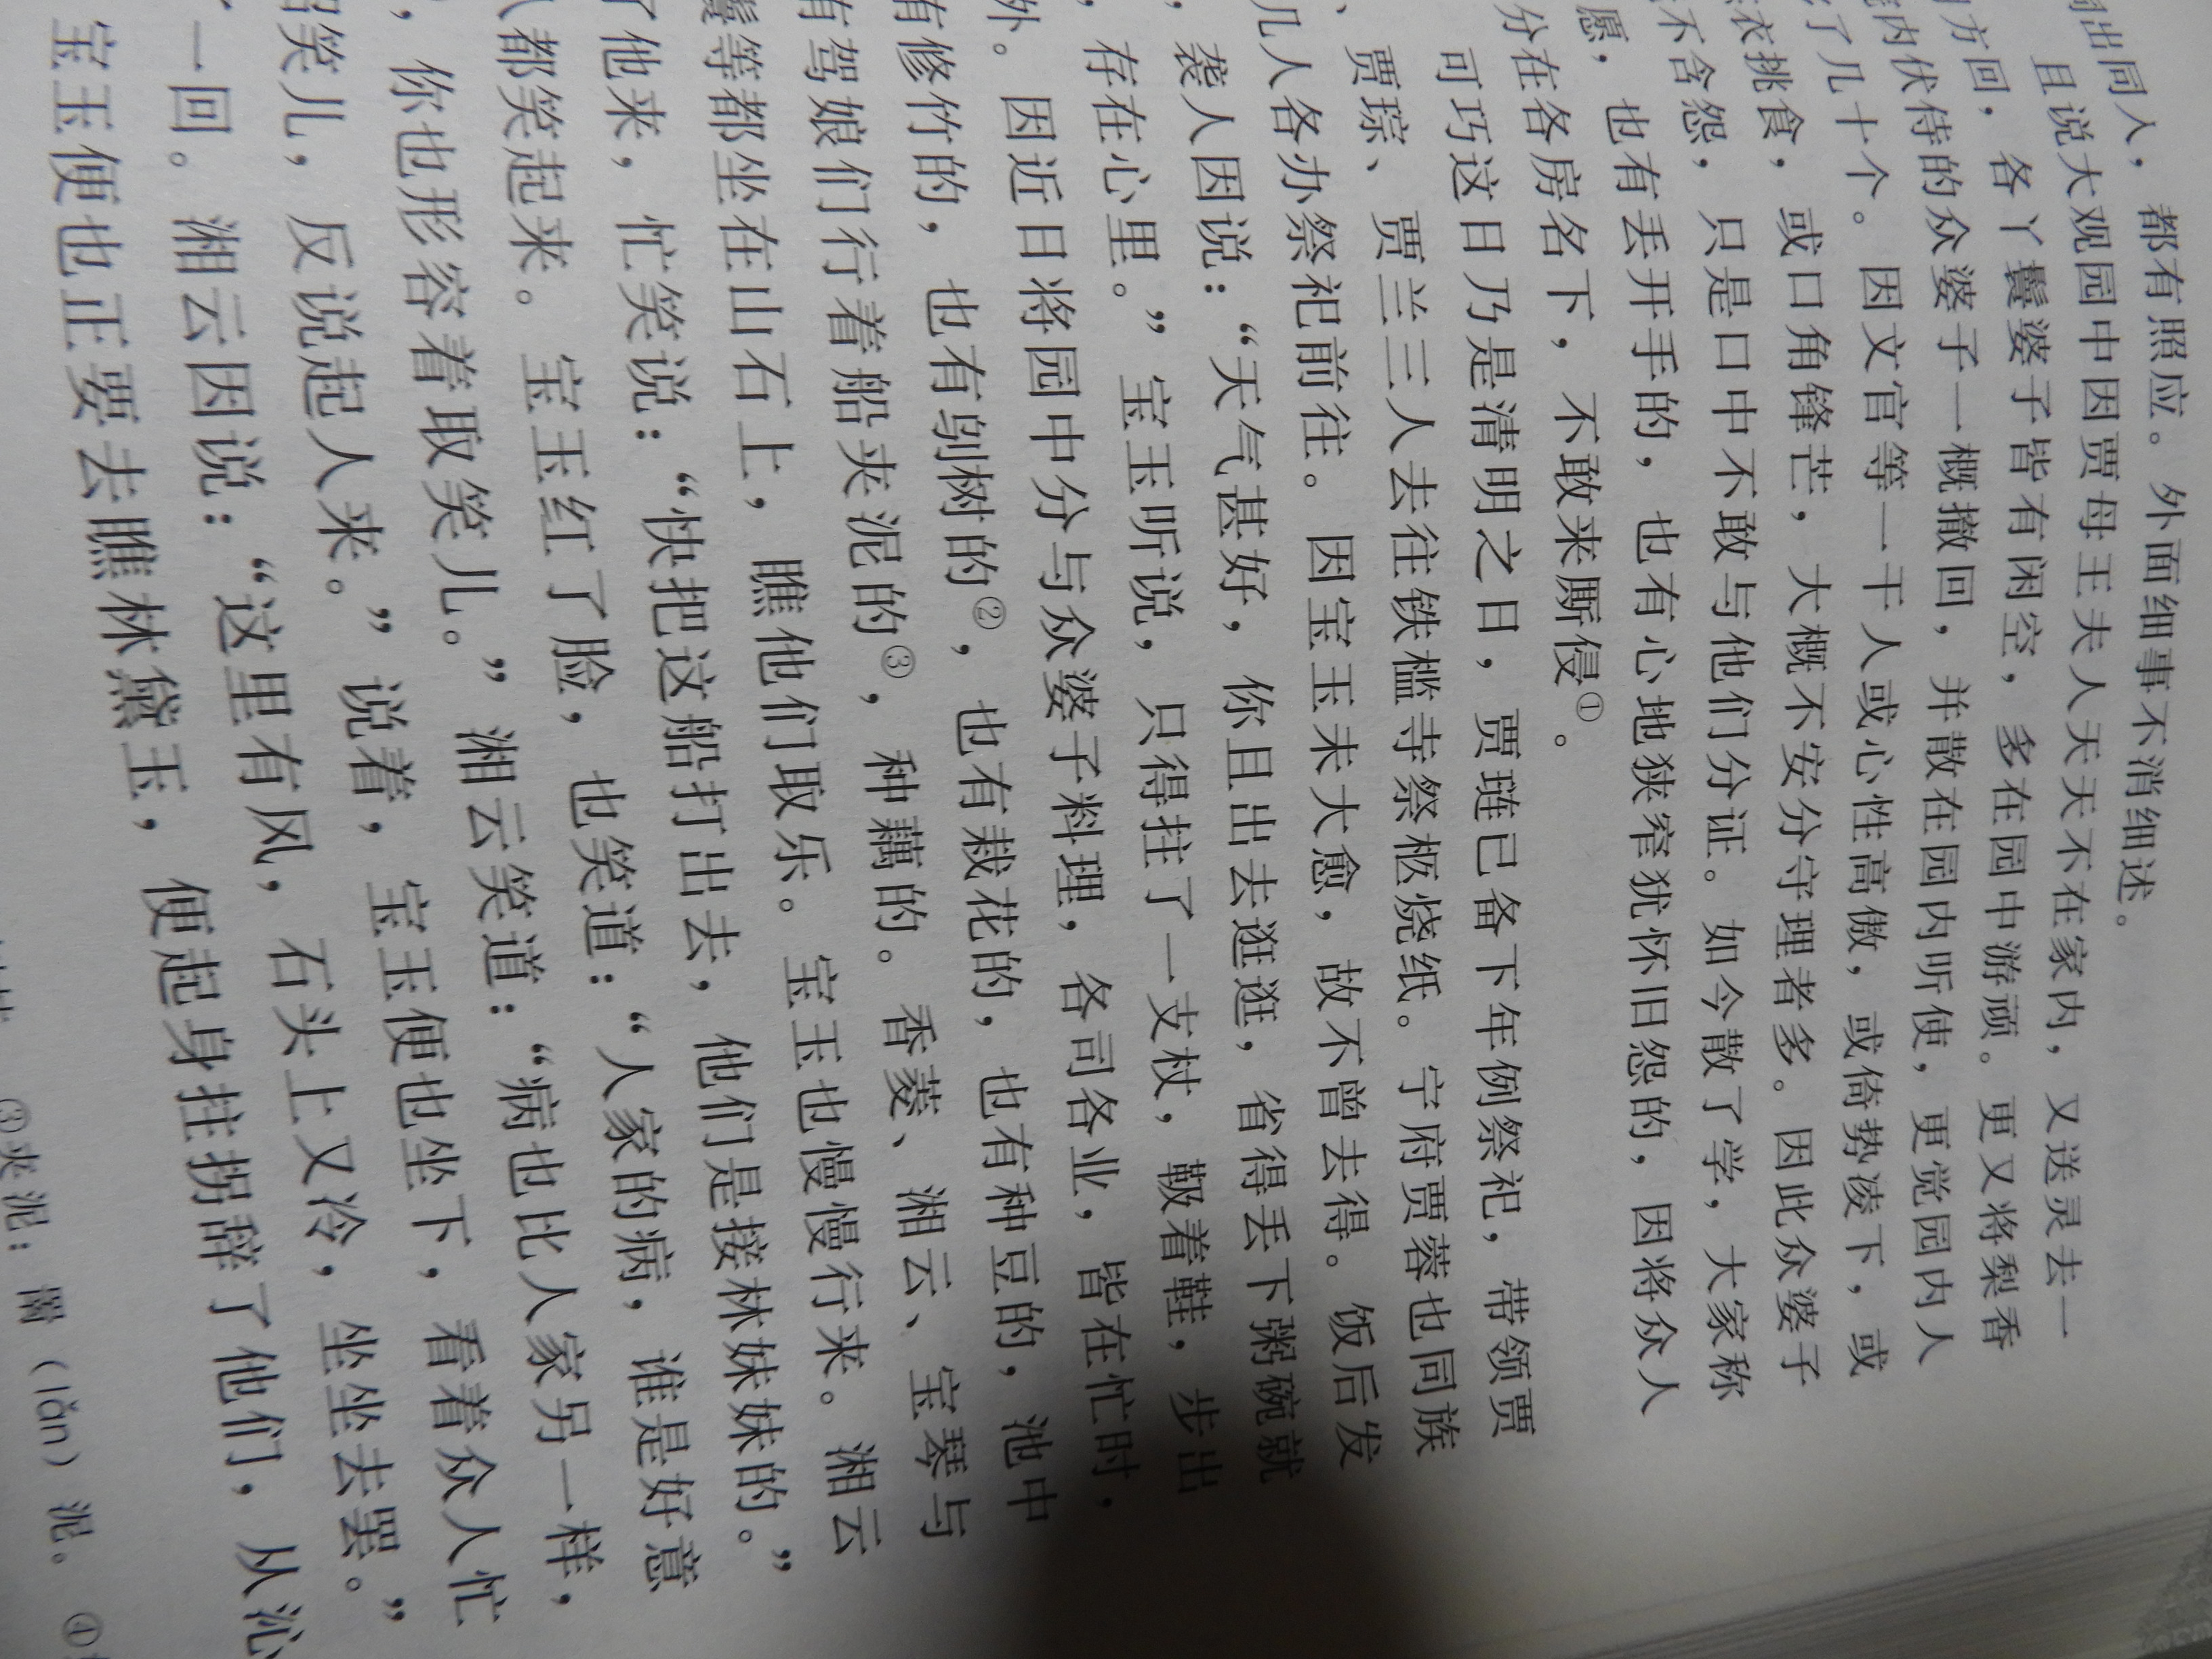 出同人，都有照应。外面细事不消细述。
且说大观园中因贾母王夫人天天不在家内，又送灵去一
方回，各丫鬟婆子皆有闲空，多在园中游顽。更又将梨香
内伏侍的众婆子一概撤回，并散在园内听使，更觉园内人
了几十个。因文官等一干人或心性高傲，或倚势凌下，或
衣挑食，或口角锋芒，大概不安分守理者多。因此众婆子
不含怨，只是口中不敢与他们分证。如今散了学，大家称
愿，也有丢开手的，也有心地狭窄犹怀旧怨的，因将众人
分在各房名下，不敢来厮侵①。
可巧这日乃是清明之日，贾琏已备下年例祭祀，带领贾
、贾琮、贾兰三人去往铁槛寺祭柩烧纸。宁府贾蓉也同族
几人各办祭祀前往。因宝玉未大愈，故不曾去得。饭后发
，袭人因说：“天气甚好，你且出去逛逛，省得丢下粥碗就
，存在心里。”宝玉听说，只得拄了一支杖，靸着鞋，步出
外。因近日将园中分与众婆子料理，各司各业，皆在忙时，
有修竹的，也有剔树的②，也有栽花的，也有种豆的，池中
有驾娘们行着船夹泥的③，种藕的。香菱、湘云、宝琴与
鬟等都坐在山石上，瞧他们取乐。宝玉也慢慢行来。湘云
了他来，忙笑说：“快把这船打出去，他们是接林妹妹的。”
人都笑起来。宝玉红了脸，也笑道：“人家的病，谁是好意
，你也形容着取笑儿。”湘云笑道：“病也比人家另一样，
招笑儿，反说起人来。”说着，宝玉便也坐下，看着众人忙
了一回。湘云因说：“这里有风，石头上又冷，坐坐去罢。”
宝玉便也正要去瞧林黛玉，便起身拄拐辞了他们，从沁
③夹泥：罱（lǎn）泥。 ④